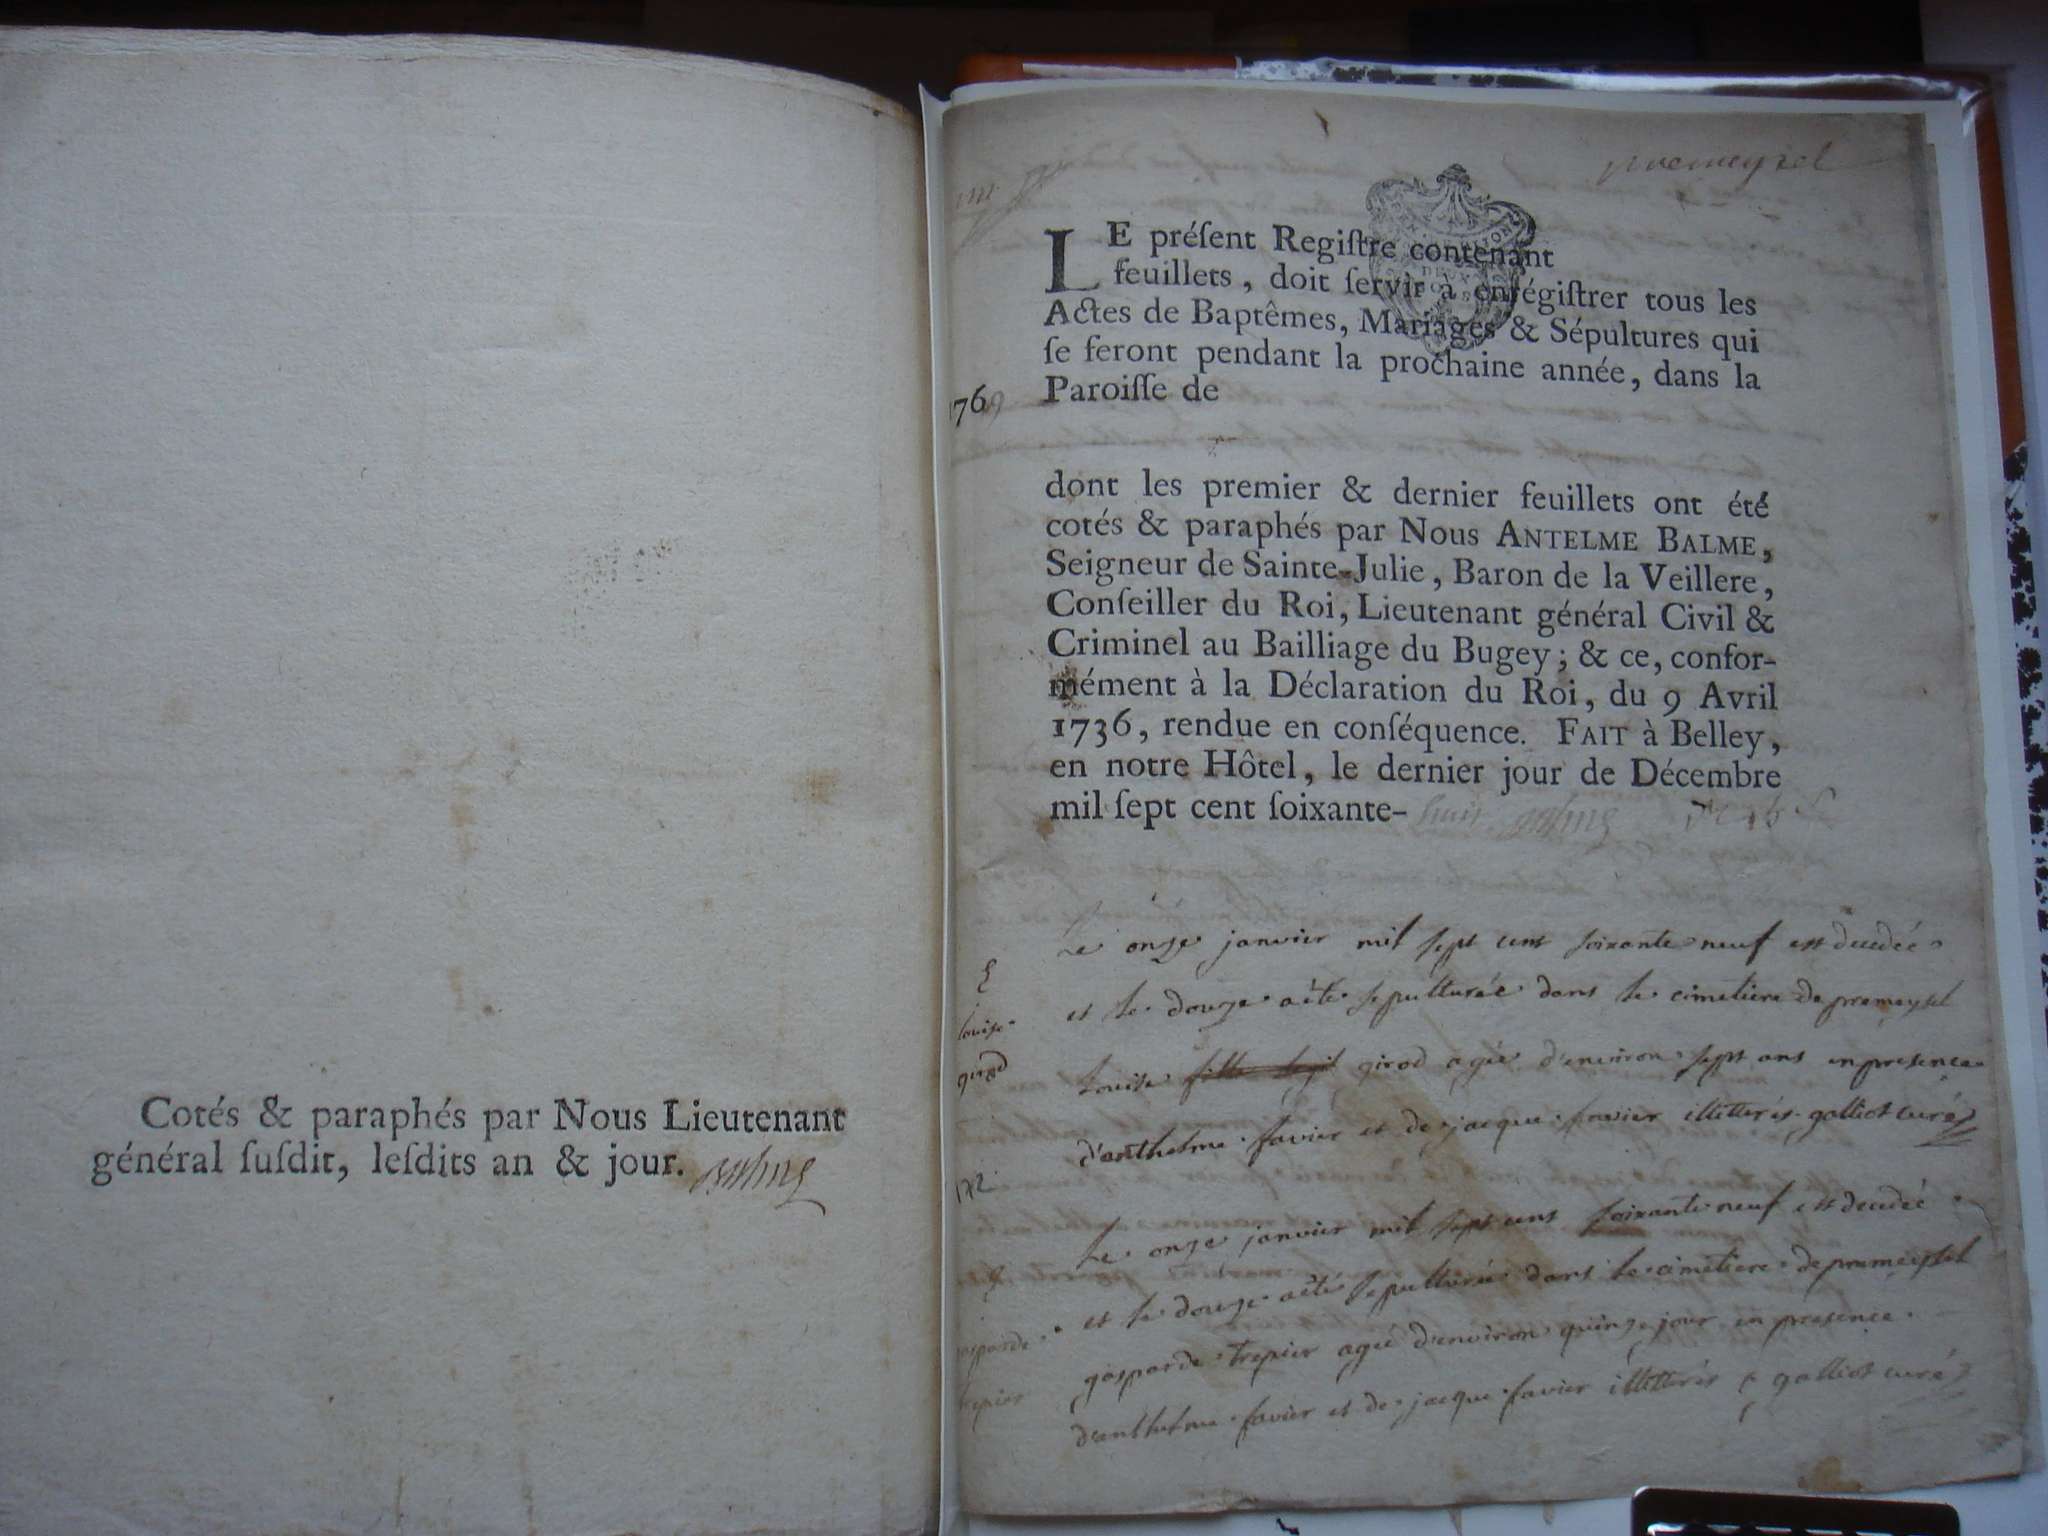 Cotés & paraphés par Nous Lieutenant
général ſuſdit, leſdits an & jour.
premeyzel
LE préſent Regiſtre contenant
feuillets, doit ſervir à enrégiſtrer tous les
Actes de Baptêmes, Mariages & Sépultures qui
ſe feront pendant la prochaine année, dans la
1769 Paroiſſe de
dont les premier & dernier feuillets ont été
cotés & paraphés par Nous ANTELME BALME,
Seigneur de Sainte-Julie, Baron de la Veillere,
Conſeiller du Roi, Lieutenant général Civil &
Criminel au Bailliage du Bugey; & ce, confor-
mément à la Déclaration du Roi, du 9 Avril
1736, rendue en conſéquence. FAIT à Belley,
en notre Hôtel, le dernier jour de Décembre
mil ſept cent ſoixante- huit
Le onze janvier mil sept cent soixante neuf est decedée
et le douze a été sepulturée dans le cimetiere de premeyzel
louise
girod
Louise fille legit girod agée d'environ sept ans en presence
d'anthelme favier et de jacque favier illitterés galliot curé
Le onze janvier mil sept cent soixante neuf est decedée
et le douze a été sepulturée dans le cimetiere de premeyzel
gasparde
trepier
gasparde trepier agée d'environ quinze jour en presence
d'anthelme favier et de jacque favier illitterés galliot curé